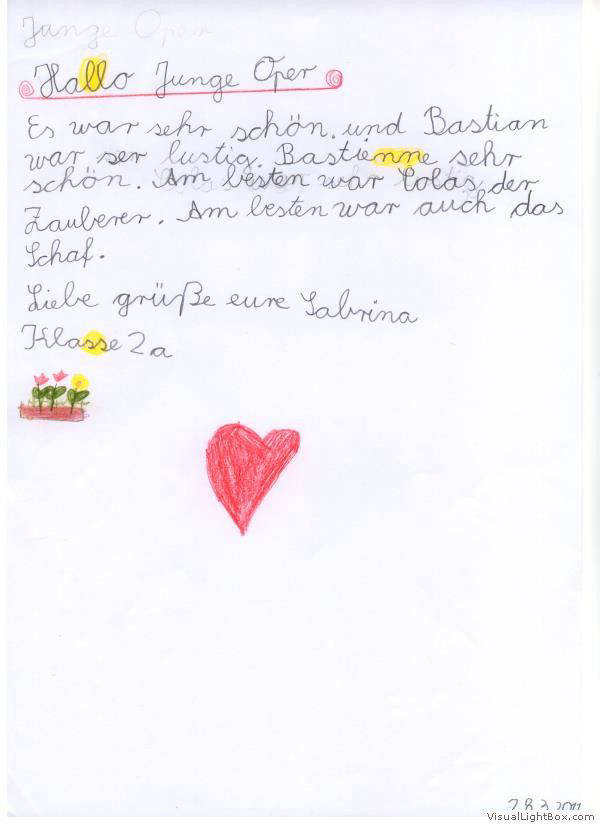 Junge Oper
Hallo Junge Oper
Es war sehr schön. und Bastian
war ser lustig. Bastienne sehr
schön. Am besten war Colas der
Zauberer. Am besten war auch das
Schaf.
Liebe grüße eure Sabrina
Klasse 2a
28.3.2011
VisualLightBox.com